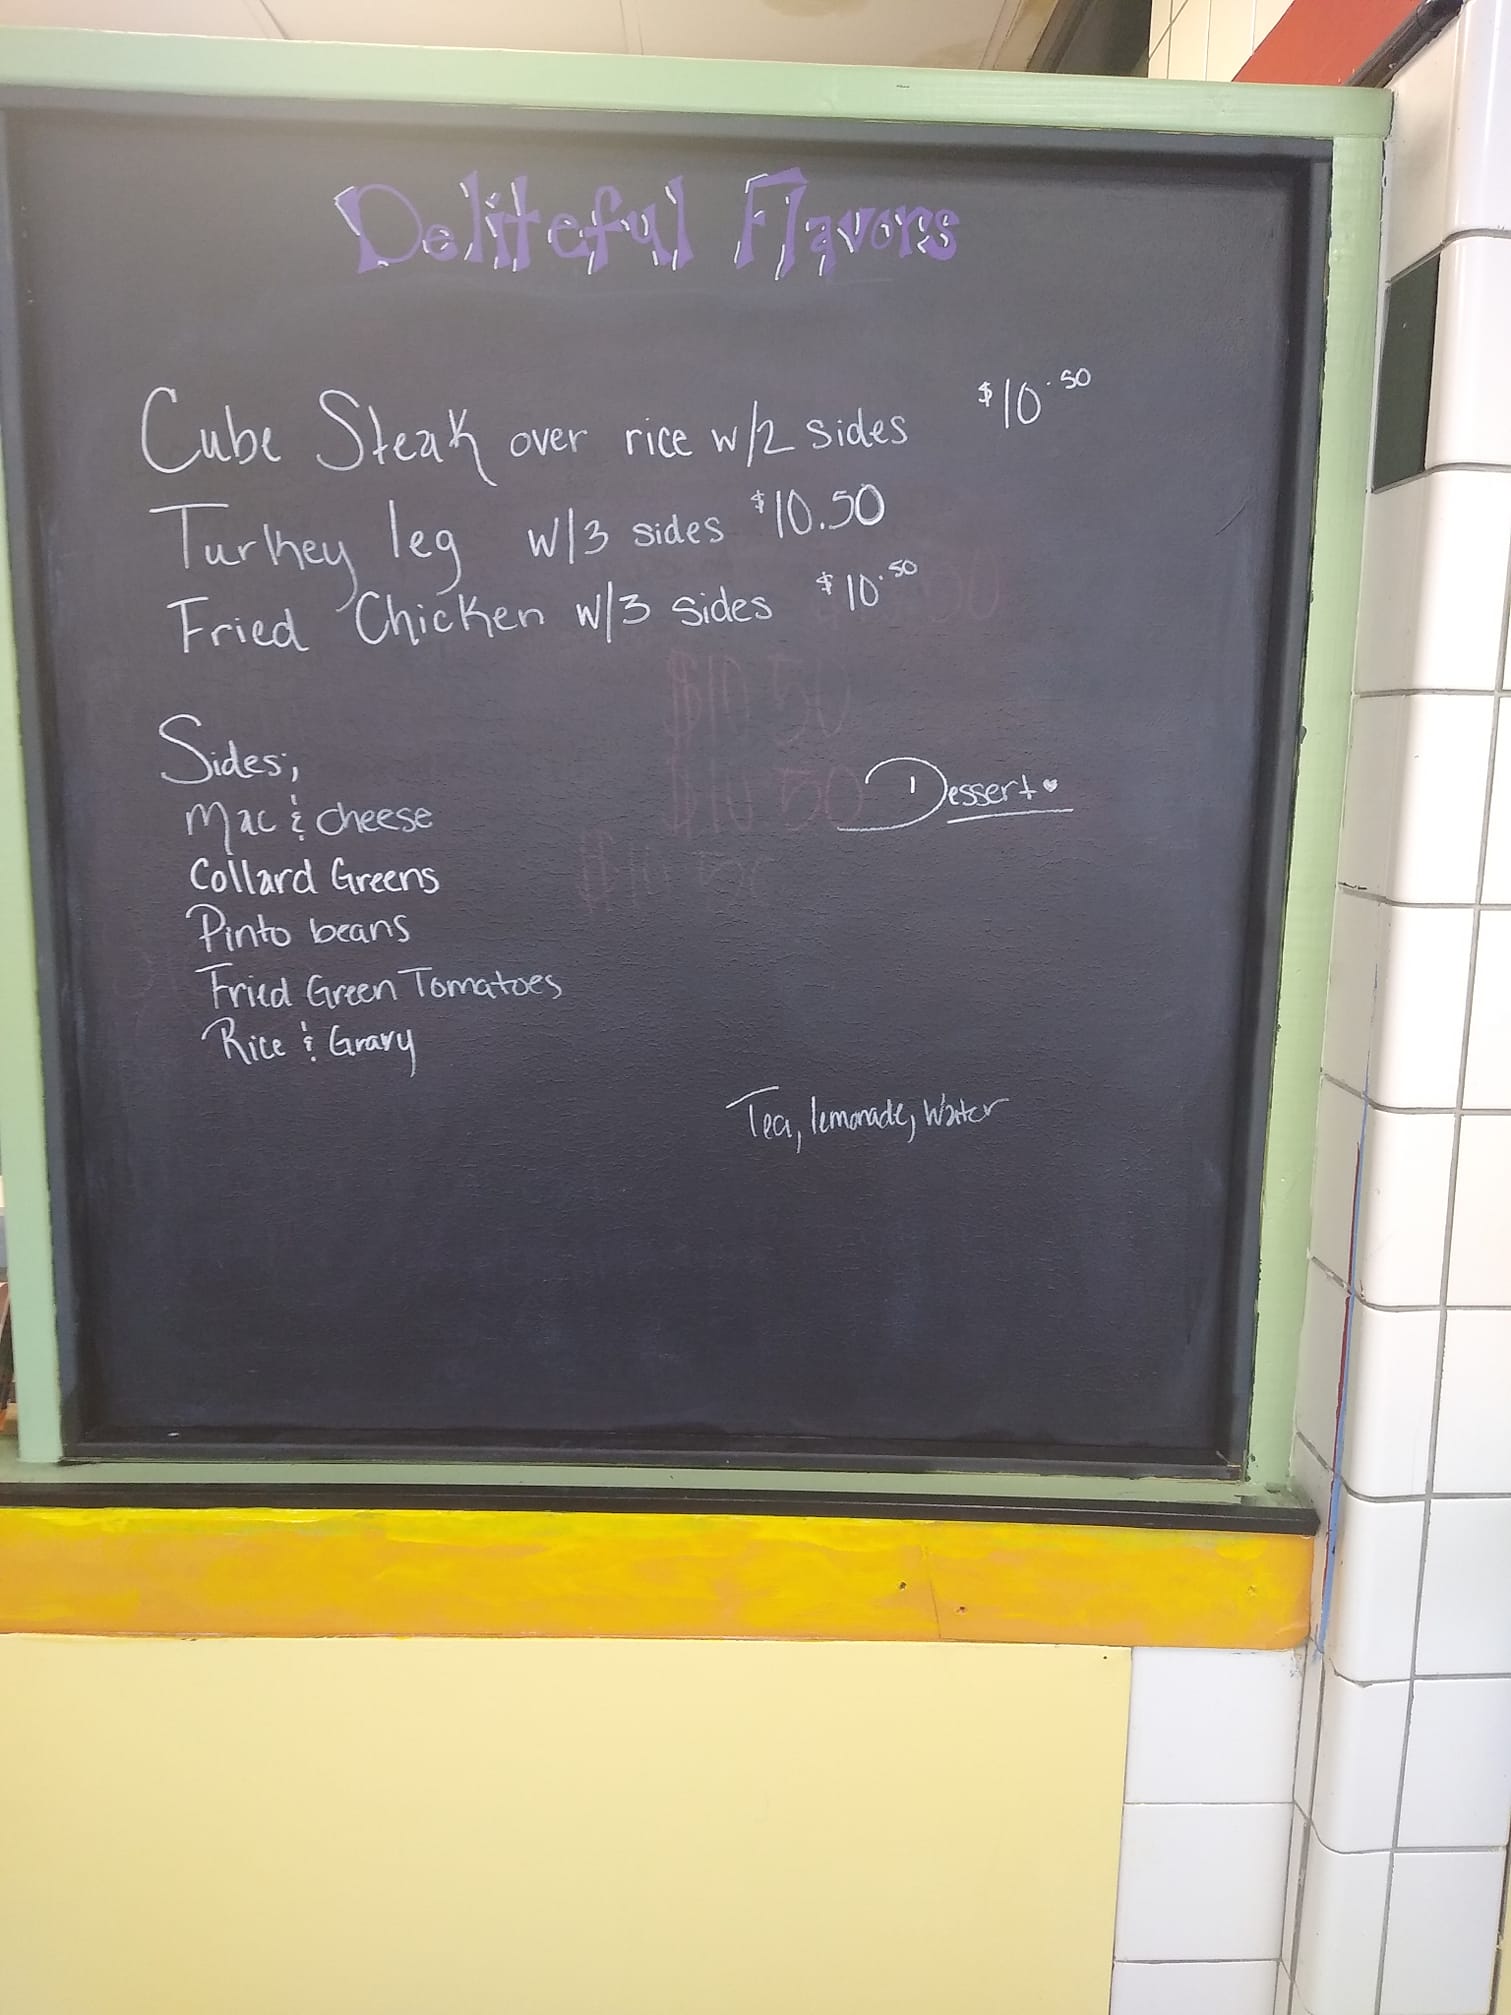 Deliteful Flavors
Cube Steak over rice w/2 sides $10.50
Turkey leg w/3 sides $10.50
Fried Chicken w/3 sides $10.50
$10.50
$10.50
Sides;
Mac & cheese
Dessert
Collard Greens
Pinto beans
Fried Green Tomatoes
Rice & Gravy
Tea, lemonade, Water